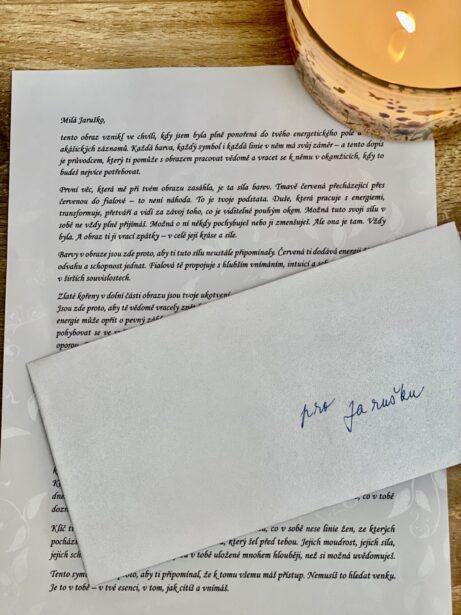 Milá Jaruško,
tento obraz vznikl ve chvíli, kdy jsem byla plně ponořená do tvého energetického pole a
akášických záznamů. Každá barva, každý symbol i každá linie v něm má svůj záměr – a tento dopis
je průvodcem, který ti pomůže s obrazem pracovat vědomě a vracet se k němu v okamžicích, kdy to
budeš nejvíce potřebovat.
První věc, která mě při tvém obrazu zasáhla, je ta síla barev. Tmavě červená přecházející přes
červenou do fialové – to není náhoda. To je tvoje podstata. Duše, která pracuje s energiemi,
transformuje, přetváří a vidí za závoj toho, co je viditelné pouhým okem. Možná tuto svoji sílu v
sobě ne vždy plně přijímáš. Možná o ní někdy pochybuješ nebo ji zmenšuješ. Ale ona je tam. Vždy
byla. A obraz ti ji vrací zpátky – v celé její kráse a síle.
Barvy v obraze jsou zde proto, aby ti tuto sílu neustále připomínaly. Červená ti dodává energii
odvahu a schopnost jednat. Fialová tě propojuje s hlubším vnímáním, intuicí a
v širších souvislostech.
Zlaté kořeny v dolní části obrazu jsou tvoje ukotvení
Jsou zde proto, aby tě vědomě vracely zpět
energie může opřít o pevný
pohybovat se ve
oporou
pro Jarušku
co v tobě
Klíč
co v sobě nese linie žen, ze kterých
který šel před tebou. Jejich moudrost, jejich síla,
jejich
v tobě uložené mnohem hlouběji, než si možná uvědomuješ.
Tento
proto, aby ti připomínal, že k tomu všemu máš přístup. Nemusíš to hledat venku.
Je to v tobě – v tvé esenci, v tom, jak cítíš a vnímáš.